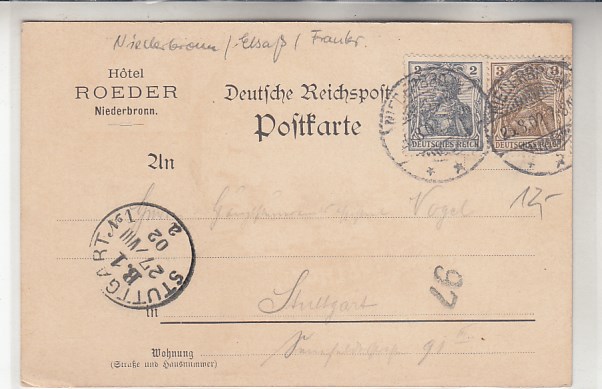 Niederbronn / Elsaß / Frankr.
Hôtel
ROEDER
Niederbronn.
Deutsche Reichspost
Postkarte
2 2
DEUTSCHES REICH
3 3
DEUTSCHES REICH
An
12,-
Vogel
STUTTGART No 1
B.1
27/VIII
02
a
97
in Stuttgart
91
Wohnung
(Straße und Hausnummer)